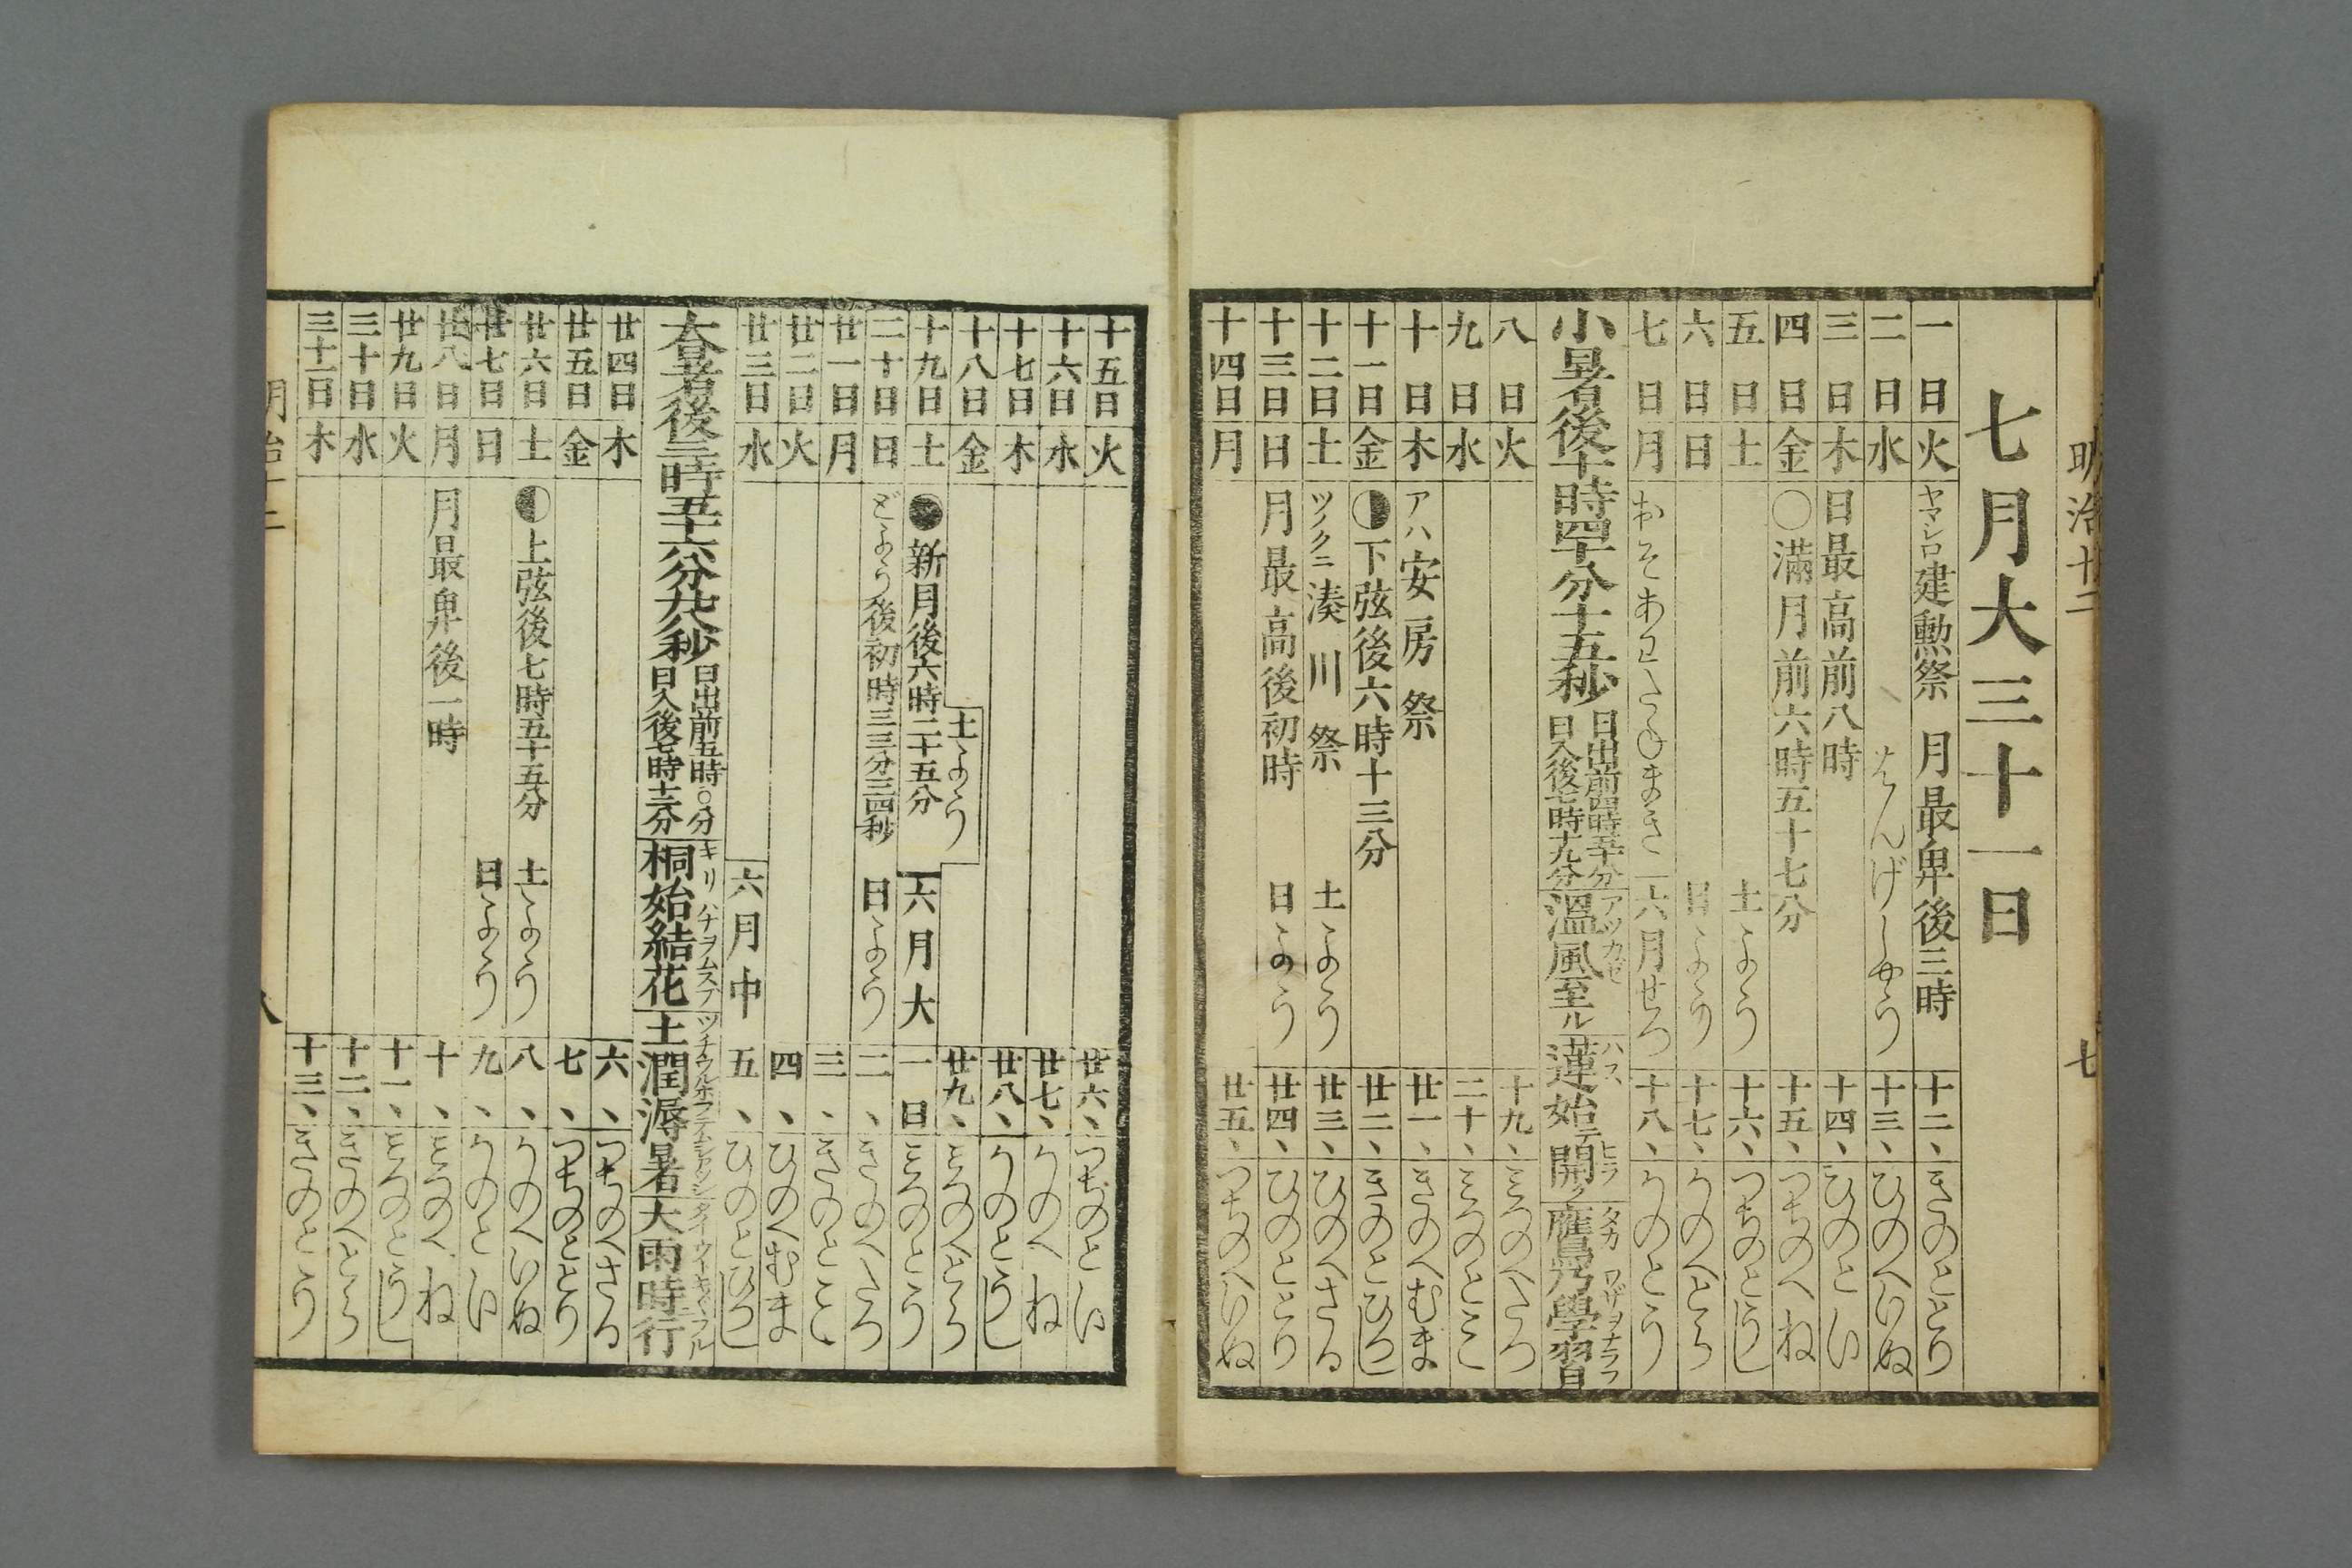 明治十二
七
七月大三十一日
一日火 ヤマシロ建勲祭 月最卑後三時 十二、きのととり
二日水 はんげしやう 十三、ひのへいぬ
三日木 日最高前八時 十四、ひのとい
四日金 ○満月前六時五十七分 十五、つちのへね
五日土 土よう 十六、つちのとうし
六日日 日よう 十七、かのへとら
七日月 おそあわたねまき 六月せつ 十八、かのとう
小暑後十時四十分十五秒 日出前四時五十分 日入後七時十九分 溫風至ル アツカゼ 蓮始テ開ク ハス ヒラ 鷹乃學習 タカ ワザヲナラフ
八日火 十九、みつのへたつ
九日水 二十、みつのとみ
十日木 アハ安房祭 廿一、きのへむま
十一日金 ◑下弦後六時十三分 廿二、きのとひつし
十二日土 ツノクニ湊川祭 土よう 廿三、ひのへさる
十三日日 月最高後初時 日よう 廿四、ひのととり
十四日月 廿五、つちのへいぬ
十五日火 廿六、つちのとい
十六日水 廿七、かのへね
十七日木 廿八、かのとうし
十八日金 土よう 廿九、みつのへとら
十九日土 ●新月後六時二十五分 六月大 一日 みつのとう
二十日日 どよう後初時三三分三四秒 日よう 二、きのへたつ
廿一日月 三、きのとみ
廿二日火 四、ひのへむま
廿三日水 六月中 五、ひのとひつし
大暑後三時五十六分廿八秒 日出前五時〇分 日入後七時十三分 桐始結花 キリハナヲムスブ 土潤溽暑 大雨時行
廿四日木 六、つちのへさる
廿五日金 七、つちのととり
廿六日土 ◐上弦後七時五十五分 土よう 八、かのへいぬ
廿七日日 日よう 九、かのとい
廿八日月 月最卑後一時 十、みつのへね
廿九日火 十一、みつのとうし
三十日水 十二、きのへとら
三十一日木 十三、きのとう
明治十二
八